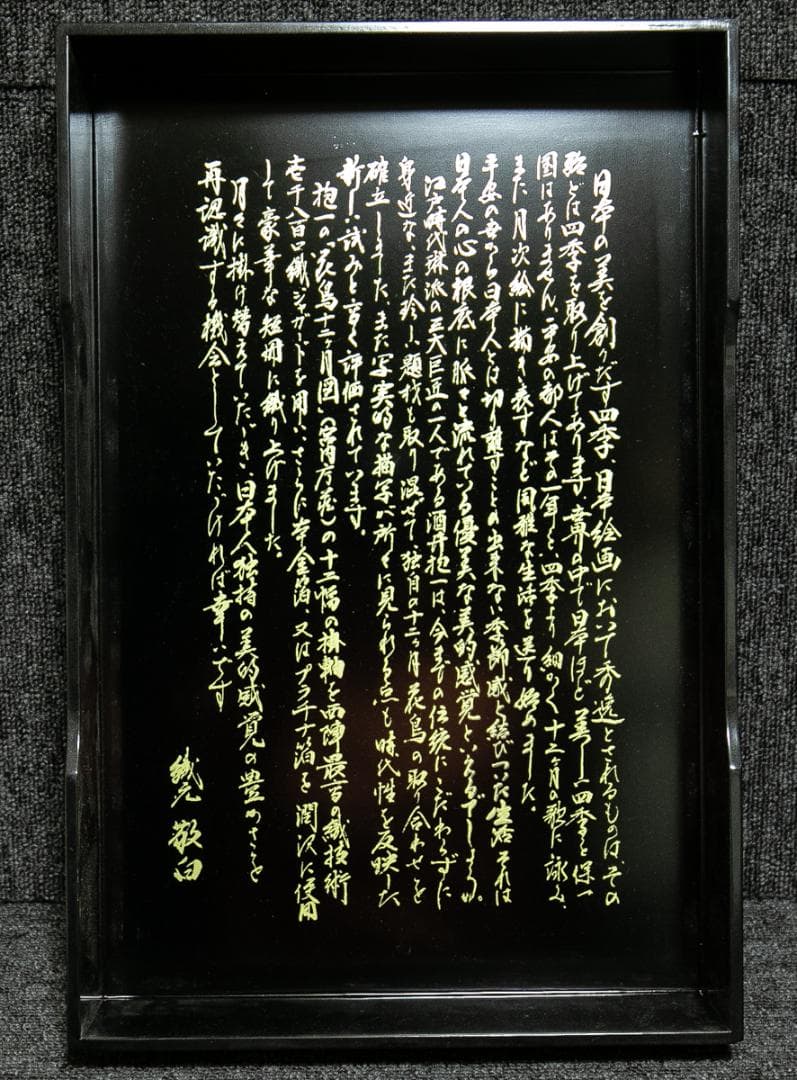 日本の美を創りだす四季、日本絵画において秀逸とされるものは、その
殆どは四季を取り上げてあります。世界の中で日本ほど美しい四季を保つ
国はありません。平安の都人はその一年を、四季より細かく十二ヶ月の歌に詠み、
また月次絵に描き表すなど風雅な生活を送り始めました。
平安の昔から日本人とは切り離すことの出来ない季節感と結びついた生活それは
日本人の心の根底に脈々と流れている優美な美的感覚といえるでしょうか。
江戸時代琳派の三大巨匠の一人である酒井抱一は、今までの伝統にこだわらずに
身近な、また珍しい題材を取り混ぜて、独自の十二ヶ月花鳥の取り合わせを
確立しました。また写実的な描写が所々に見られる点も時代性を反映した
新しい試みと高く評価されています。
抱一の「花鳥十二ヶ月図」(宮内庁蔵)の十二幅の掛軸を西陣最高の織技術
壱千八百口織ジャガードを用い、さらに本金箔、又はプラチナ箔を潤沢に使用
して豪華な短冊に織り上げました。
月々に掛け替えていただき、日本人独特の美的感覚の豊かさを
再認識する機会としていただければ幸いです
織元 敬白